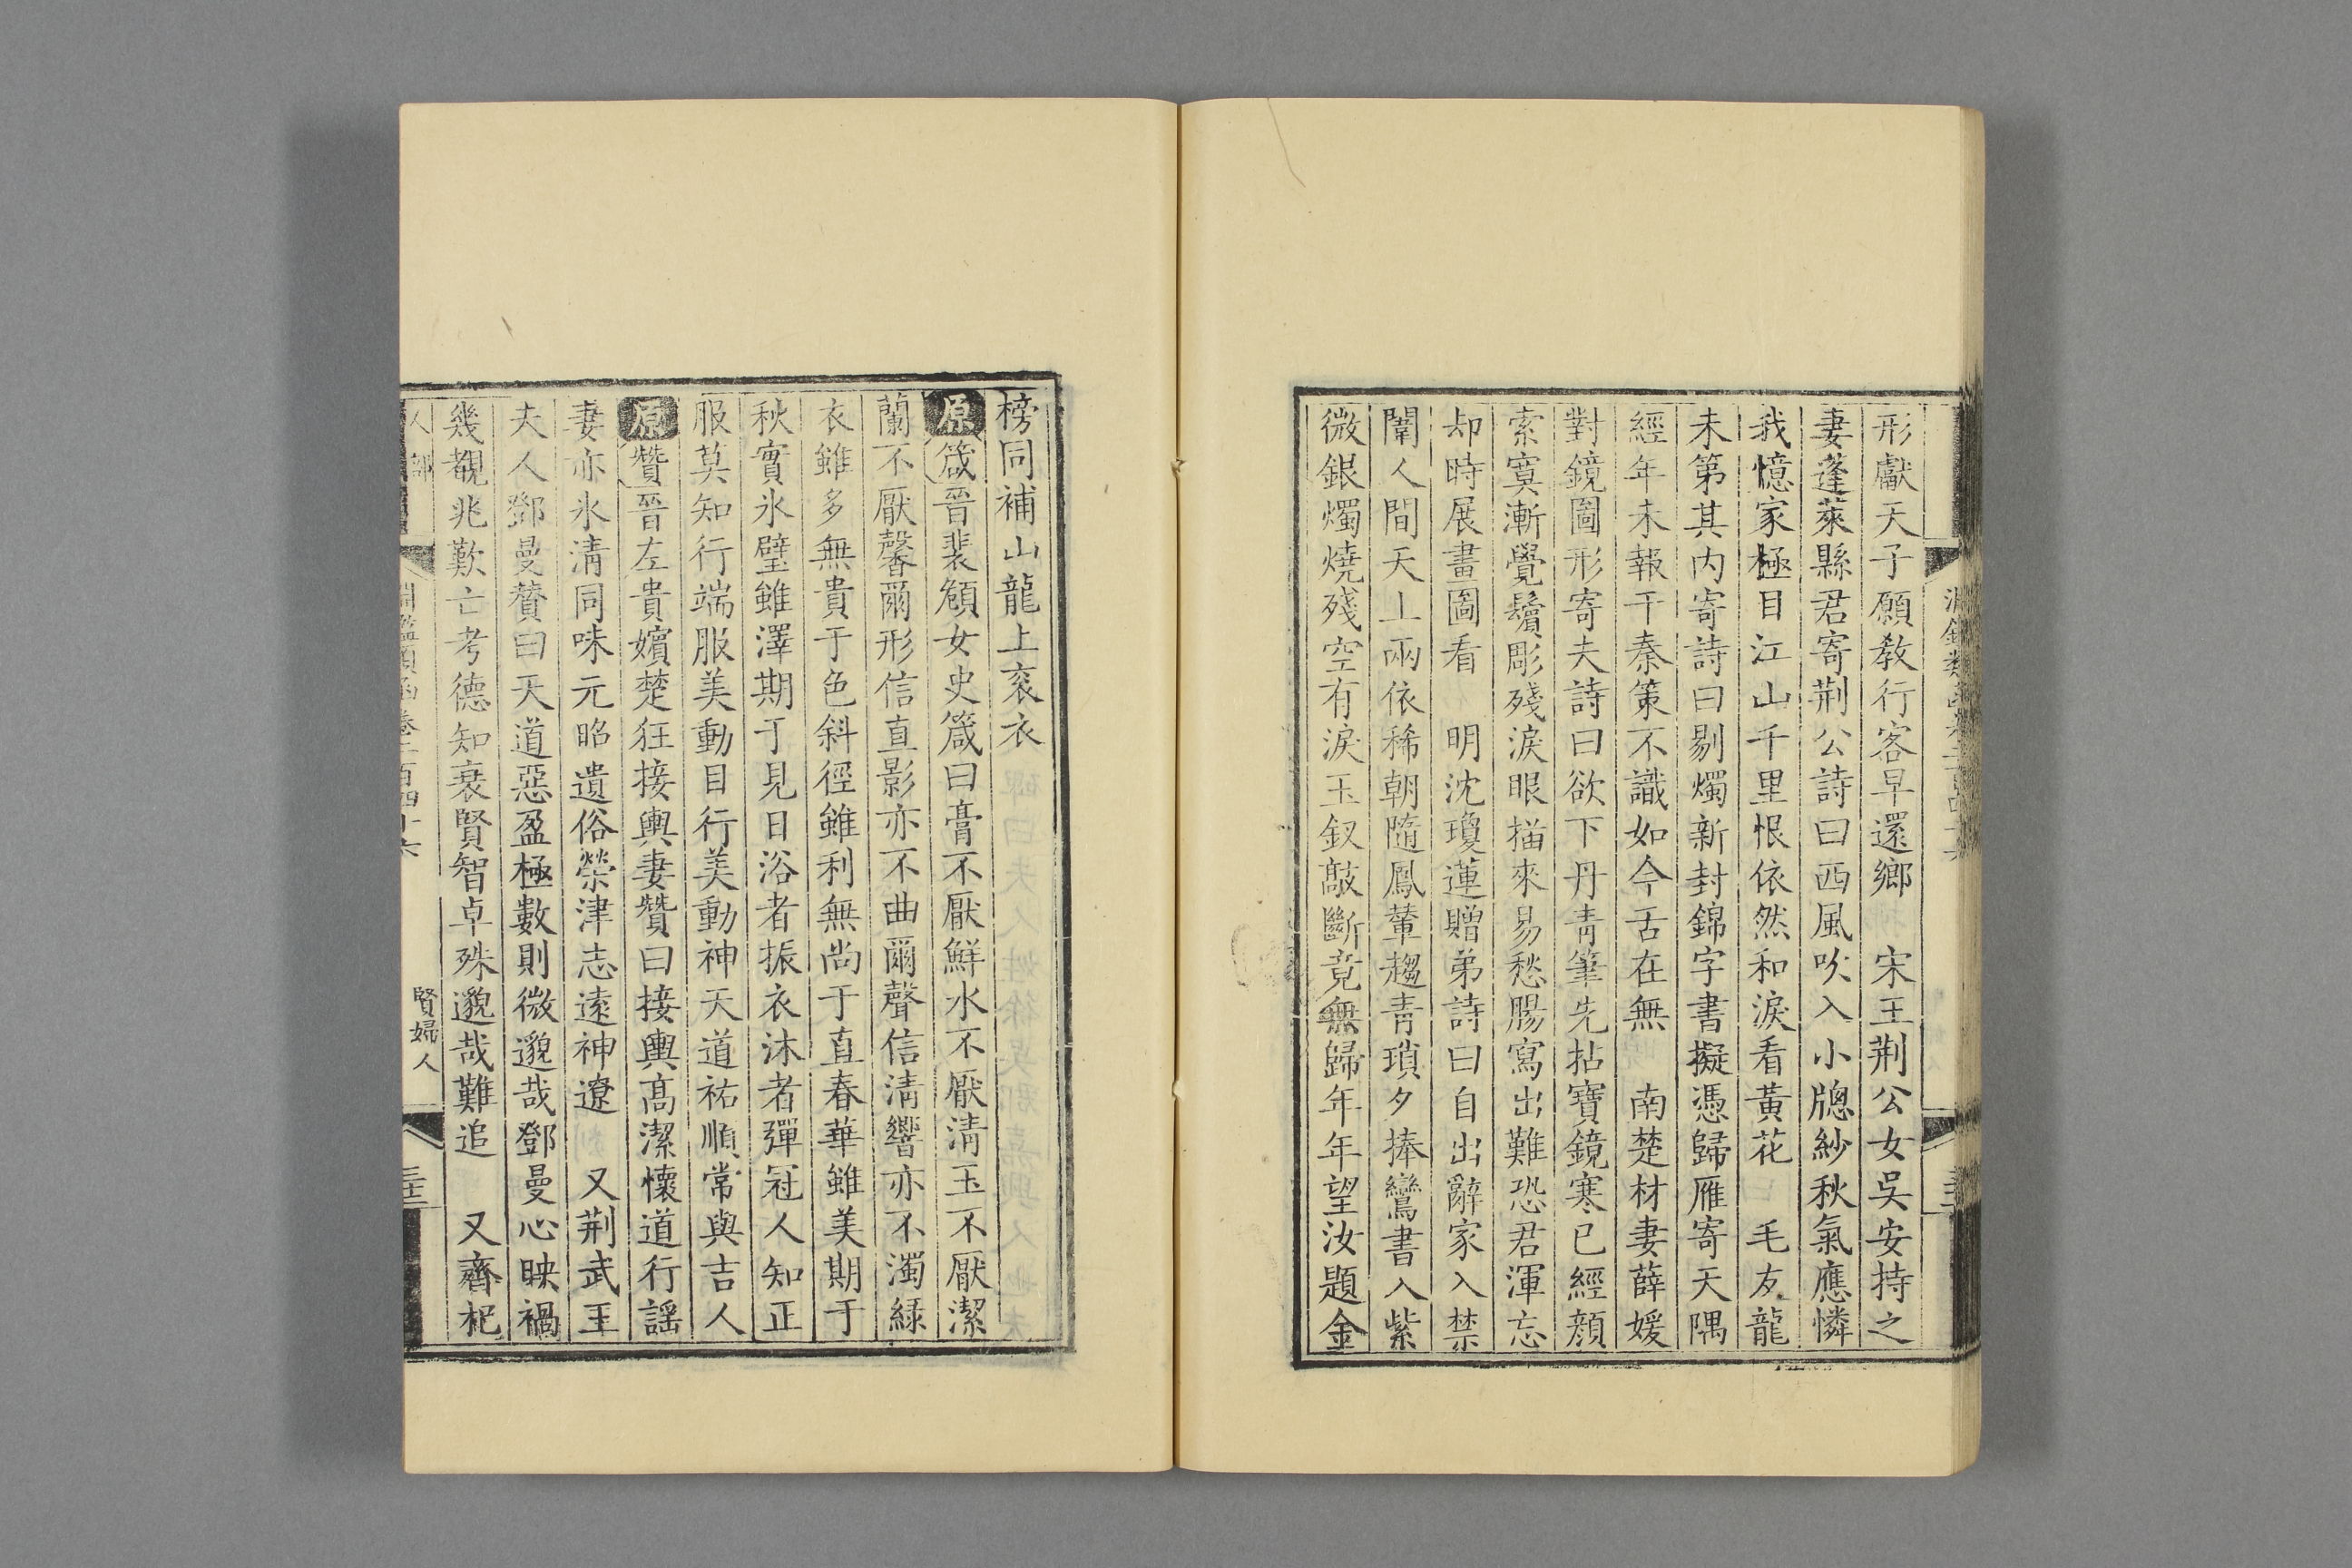 形獻天子願教行客早還鄉　宋王荆公女吳安持之
妻蓬萊縣君寄荆公詩曰西風吹入小牕紗秋氣應憐
我憶家極目江山千里恨依然和淚看黃花　毛友龍
未第其內寄詩曰剔燭新封錦字書擬憑歸雁寄天隅
經年未報干秦策不識如今舌在無　南楚材妻薛媛
對鏡圖形寄夫詩曰欲下丹青筆先拈寶鏡寒已經顏
索寞漸覺鬢彫殘淚眼描來易愁腸寫出難恐君渾忘
却時展畫圖看　明沈瓊蓮贈弟詩曰自出辭家入禁
闈人間天上兩依稀朝隨鳳輦趨青瑣夕捧鸞書入紫
微銀燭燒殘空有淚玉釵敲斷竟無歸年年望汝題金
榜同補山龍上衮衣
原箴晉裴頠女史箴曰膏不厭鮮水不厭清玉不厭潔
蘭不厭馨爾形信直影亦不曲爾聲信清響亦不濁綠
衣雖多無貴于色斜徑雖利無尚于直春華雖美期于
秋實氷璧雖澤期于見日浴者振衣沐者彈冠人知正
服莫知行端服美動目行美動神天道祐順常與吉人
原贊晉左貴嬪楚狂接輿妻贊曰接輿高潔懷道行謡
妻亦氷清同味元昭遺俗榮津志遠神遼　又荆武王
夫人鄧曼贊曰天道惡盈極數則微邈哉鄧曼心映禍
幾覩兆歎亡考德知衰賢智卓殊邈哉難追　又齊杞
人部　淵鑑類函卷二百四十六　賢婦人　三十二